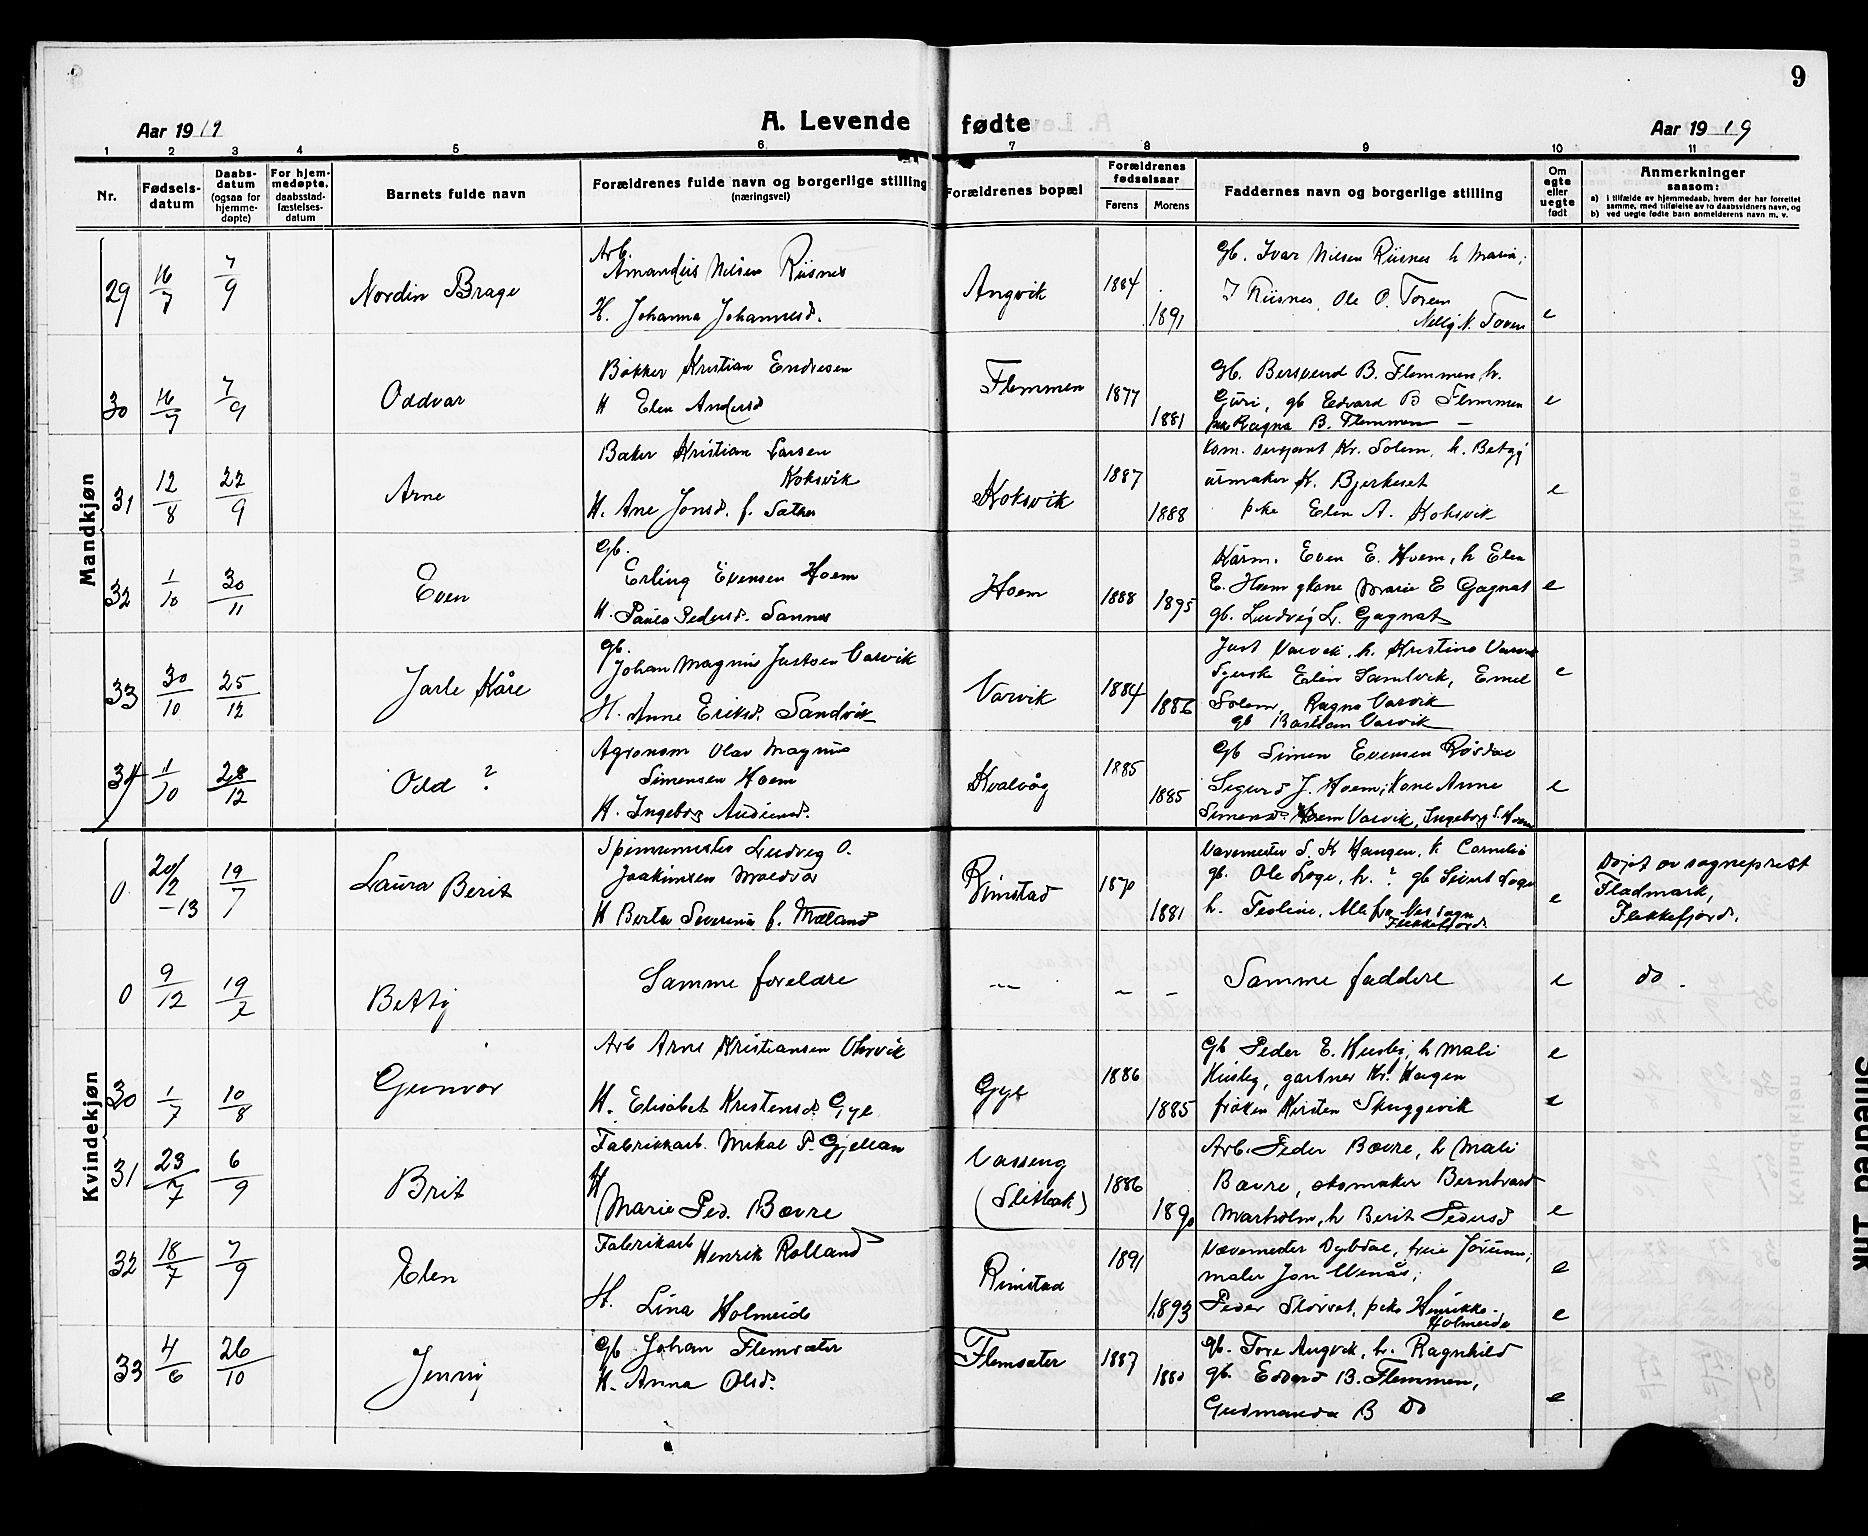 9
Aar 1919
A. Levende fødte
Aar 1919
1 2 3 4 5 6 7 8 9 10 11
Nr.
Fødsels-
datum
Daabs-
datum
(ogsaa for
hjemme-
døpte)
For hjem-
medøpte,
daabsstad-
fæstelses-
datum
Barnets fulde navn
Forældrenes fulde navn og borgerlige stilling
(næringsvei)
Forældrenes bopæl
Forældrenes
fødselsaar
Farens Morens
Faddernes navn og borgerlige stilling
Om
egte
eller
uegte
født
Anmerkninger
saasom:
a) i tilfælde av hjemmedaab, hvem der har forrettet
samme, med tilføielse av to daabsvidners navn, og
b) ved uegte fødte barn anmelderens navn m. v.
Mandkjøn
29 16/7 7/9 Nordin Brage
Arb.
Amandus Nilsen Riisnes
H. Johanna Johannesd.
Angvik 1884 1891
Gb. Ivar Nilsen Riisnes h Maria;
I Riisnes, Ole O. Toven
Nelly N. Toven
e
30 16/7 7/9 Oddvar
Bøkker Kristian Endresen
H Elen Andersd
Flemmen 1877 1881
Gb. Bersvend B. Flemmen h.
Guri, gb Edvard B Flemmen
Ragna B. Flemmen —
e
31 12/8 22/9 Arne
Baker Kristian Larsen
Koksvik
H. Ane Jonsd. f. Sæther
Koksvik 1887 1888
Kom. sersjant Kr. Solem, h. Betzy
urmaker K. Bjerkeset
pike Elen A. Koksvik
e
32 1/10 30/11 Even
Gb.
Erling Evensen Hoem
H. Paula Pedersd. Sannes
Hoem 1888 1895
Kårm. Even E. Hoem, h Elen
E. Hoem gkone Marie E Gagnat
gb. Ludvig L. Gagnat
e
33 30/10 25/12 Jarle Kåre
Gb.
Johan Magnus Justsen Varvik
H. Anne Eriksd. Sandvik
Varvik 1884 1886
Just Varvik, h. Kristine Varvik
Syerske Elin Sandvik, Emel
Solem, Ragna Varvik
gb Bastian Varvik
e
34 11/10 28/12 Odd ?
Agronom Olav Magnus
Simensen Hoem
H. Ingeborg Audiensd.
Kvalvåg 1885 1885
Gb Simen Evensen Røsdal
Sigurd J. Hoem; Kone Anne
Simensd. Hoem Varvik, Ingeborg S. Hoem
e
Kvindekjøn
0 20/2-13 19/7 Laura Berit
Spinnemester Ludvig O.
Joakimsen Moldvær
H Berta Severine f. Mæland
Rimstad 1870 1881
Vævemester S. K Haugen, h. Cornelia
gb. Ole Loge, h. ? gb Sivert Loge
h. Teoline, Alle fra Nes sogn
Flekkefjord.
e
Døpt av sogneprest
Fladmark,
Flekkefjord.
0 9/12 19/2 Betty
Samme foreldre
— — —
Samme faddere
e
do.
30 1/7 10/8 Gunvor
Arb Arne Kristiansen Ohrvik
H. Elisabet Kristensd. Gyl
Gyl 1886 1885
Gb Peder E. Husby, h Mali
Husby, gartner Kr. Hagen
frøken Kirsten Skuggevik
e
e
31 23/7 6/9 Brit
Fabrikkarb. Mikal P. Gjellan
H
Marie Ped. Bævre
Vasseng
(Slitbak)
1886 1890
Arb. Peder Bævre, h Mali
Bævre, skomaker Berntvard
Marholm, h Berit Pedersd
e
32 18/7 7/9 Elen
Fabrikarb Henrik Rolland
H. Lina Holmeide
Rimstad 1891 1893
Vævemester Dybdal, frue Jorunn;
maler Jon Wenås;
Peder Storset, pike Henrikke
Holmeide
e
e
33 4/6 26/10 Jenny
Gb Johan Flemsæter
H. Anna Olsd.
Flemsæter 1887 1880
Gb. Tore Angvik, h. Ragnhild
gb. Edvard B. Flemmen,
Gudmunda B do
e